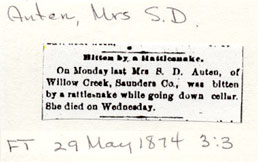 Auten, Mrs S.D.
Bitten by a Rattlesnake.
On Monday last Mrs S. D. Auten, of
Willow Creek, Saunders Co., was bitten
by a rattlesnake while going down cellar.
She died on Wednesday.
FT 29 May 1874 3:3